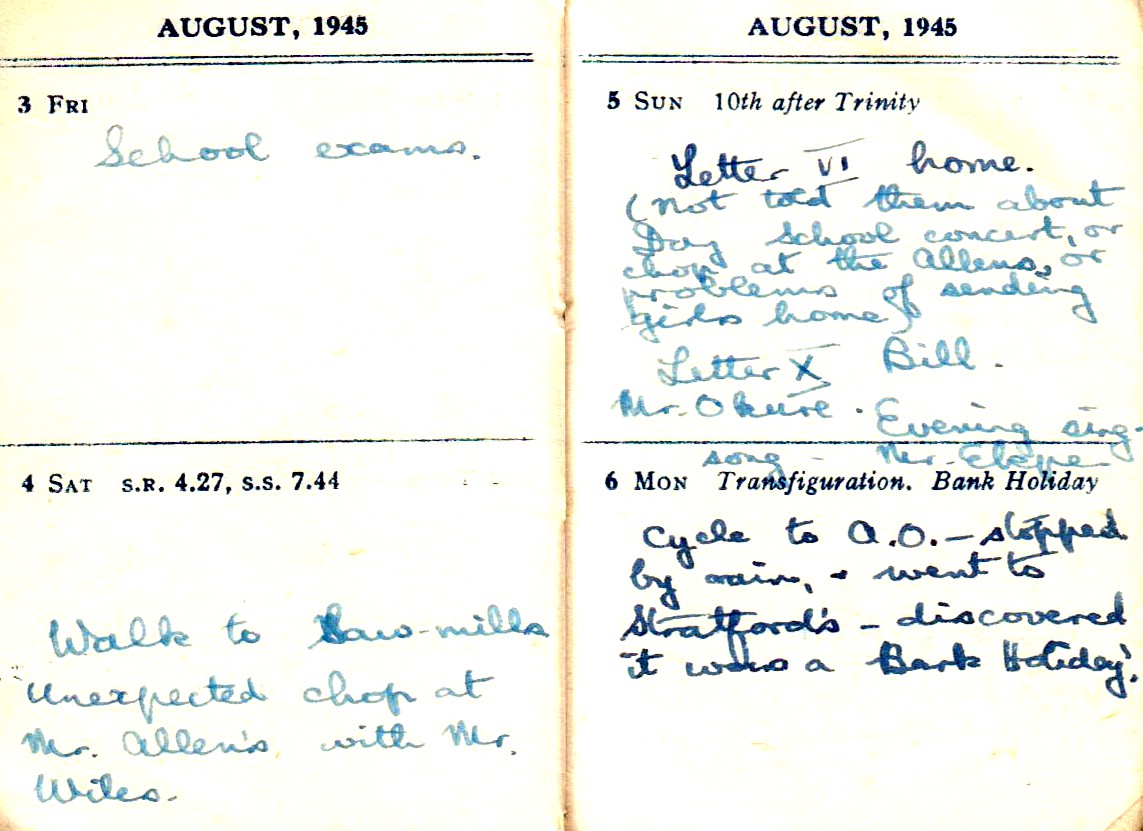 AUGUST, 1945
3 FRI
School exams.
4 SAT S.R. 4.27, S.S. 7.44
Walk to Saw-mills
Unexpected chop at
Mr. Allen's with Mr.
Wiles.
AUGUST, 1945
5 SUN 10th after Trinity
Letter VI home.
(Not told them about
Day School concert, or
chop at the Allens, or
problems of sending
girls home)
Letter X Bill.
Mr. Okure. Evening sing-
song - Mr.
6 MON Transfiguration. Bank Holiday
Cycle to A.O. – stopped
by rain, & went to
Stratford's – discovered
it was a Bank Holiday!